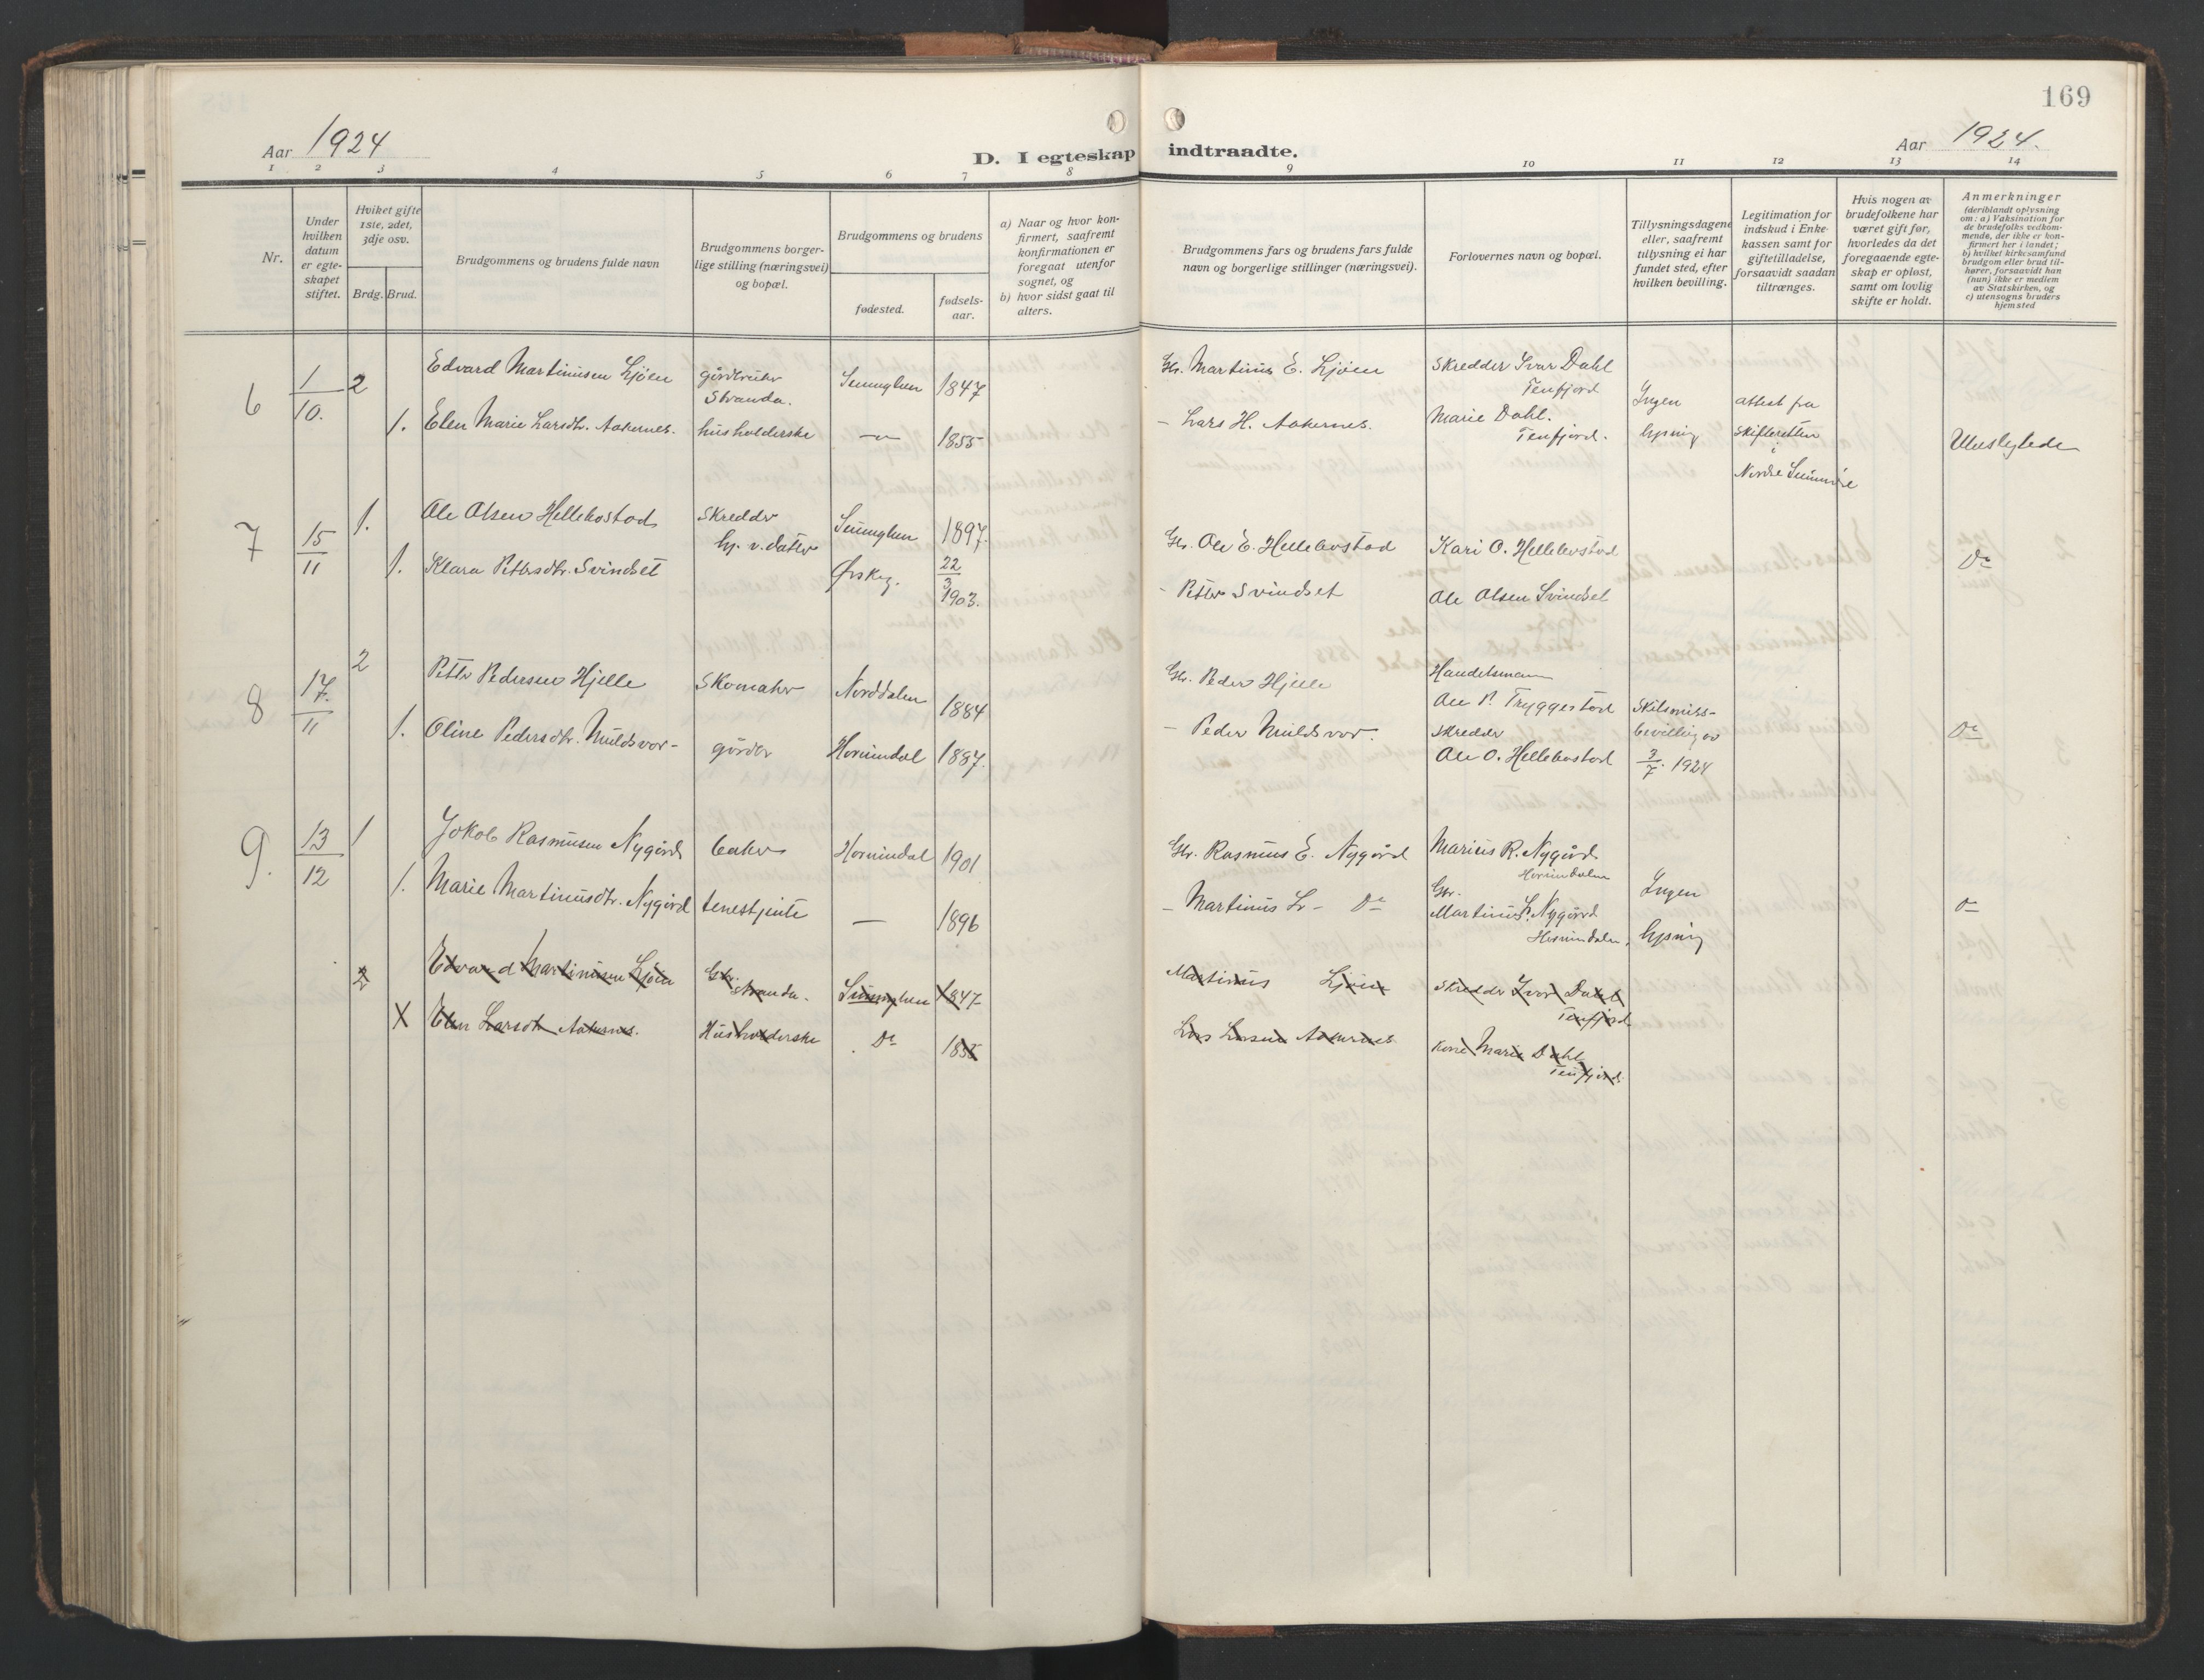 169
Aar 1924
D. I egteskap indtraadte.
Aar 1924.
1 2 3 4 5 6 7 8 9 10 11 12 13 14
Nr.
Under hvilken datum er egte-skapet stiftet.
Hviket gifte 1ste, 2det, 3dje osv.
Brdg. Brud.
Brudgommens og brudens fulde navn
Brudgommens borger-lige stilling (næringsvei) og bopæl.
Brudgommens og brudens
fødested.
fødsels-aar.
a) Naar og hvor kon-firmert, saafremt konfirmationen er foregaat utenfor sognet, og
b) hvor sidst gaat til alters.
Brudgommens fars og brudens fars fulde navn og borgerlige stillinger (næringsvei).
Forlovernes navn og bopæl.
Tillysningsdagene eller, saafremt tillysning ei har fundet sted, efter hvilken bevilling.
Legitimation for indskud i Enke-kassen samt for giftetilladelse, forsaavidt saadan tiltrænges.
Hvis nogen av brudefolkene har været gift før, hvorledes da det foregaaende egte-skap er opløst, samt om lovlig skifte er holdt.
Anmerkninger
(deriblandt oplysning om: a) Vaksination for de brudefolks vedkom-mende, der ikke er kon-firmert her i landet; b) hvilket kirkesamfund brudgom eller brud til-hører, forsaavidt han (hun) ikke er medlem av Statskirken, og c) utensogns bruders hjemsted
6 1/10. 2 Edvard Martinusen Ljøen gårdbruker Stranda. Sunnylven 1847 Gbr. Martinus E. Ljøen Skredder Ivar Dahl Tenfjord
1. Elen Marie Larsdtr. Aakernes. husholderske —"— 1855 - Lars H. Aakernes. Marie Dahl. Tenfjord. Ingen lysning attest fra Skifteretten i Nordre Sunnmøre Ubeslegtede
7 15/11 1. Ole Olsen Hellebostad Skredder Sunnylven 1897. Gbr. Ole E. Hellebostad Kari O. Hellebostad Do
1. Klara Pettersdtr. Svindset hj. v. datter Ørskog. 22/3 1903. - Petter Svindset Ole Olsen Svindset
8 17./11 2 Petter Pedersen Hjelle Skomaker Norddalen 1884 Gbr. Peder Hjelle Handelsmann Ole P. Tryggestad
1. Oline Pedersdtr. Muldsvor- gårder Hornindal 1887. - Peder Muldsvor. Skredder Ole O. Hellebostad Skilsmiss- bevilling av 3/7. 1924 Do
9. 13/12 1 Jakob Rasmusen Nygård baker Hornindal 1901 Gbr. Rasmus E. Nygård Marius R. Nygård Hornindalen
1. Marie Martinusdtr. Nygård tenestjente — 1896 - Martinus L - Do Gbr. Martinus L. Nygård Hornindalen, Ingen lysning Do
2 Edvard Martinusen Ljøen Gbr. Stranda. Sunnylven 1847 Martinus Ljøen Skredder Ivar Dahl Tenfjord
X Elen Larsdtr Aakernes. Husholderske Do 1855 Lars Larsen Aakernes Kone Marie Dahl Tenfjord